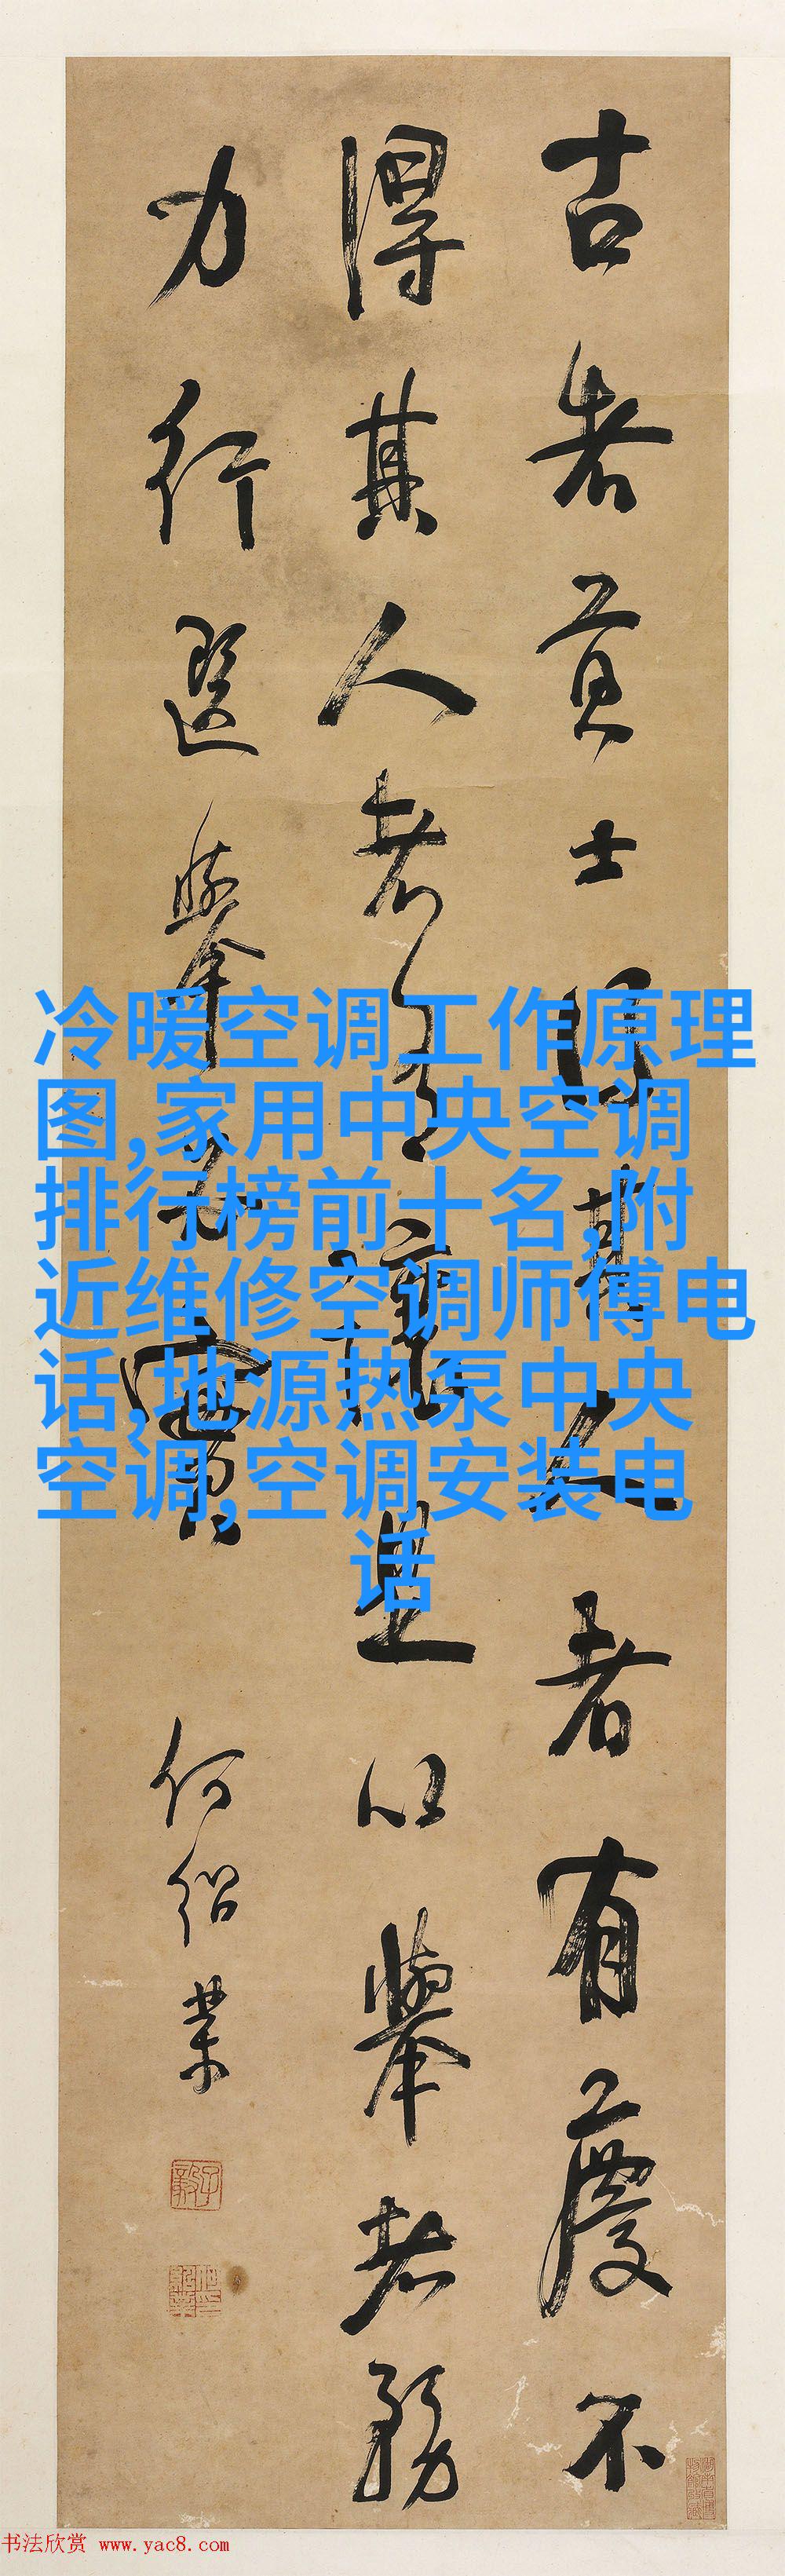 古者貢士得其人者有慶不
得其人者有讓是以舉者務
力行選舉求實
何紹業
冷暖空调工作原理
图,家用中央空调
排行榜前十名,附
近维修空调师傅电
话,地源热泵中央
空调,空调安装电
话
书法欣赏 www.yac8.com